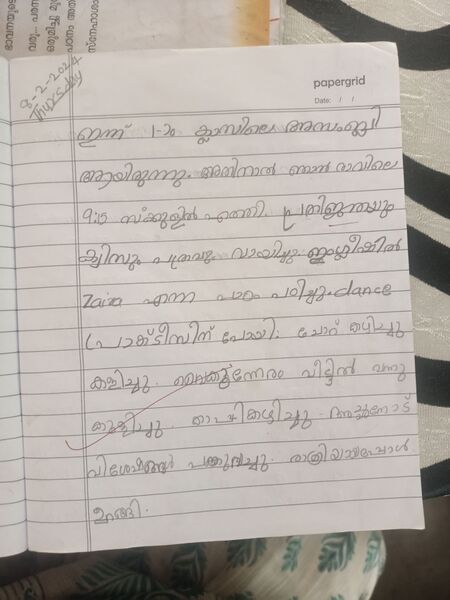 8-2-2024
Thursday
papergrid
Date: / /
ഇന്ന് 1-ാം ക്ലാസിലെ അസംബ്ലി
ആയിരുന്നു. അതിനാൽ ഞാൻ രാവിലെ
9:15 സ്ക്കൂളിൽ എത്തി. പ്രതിജ്ഞയും
ക്വിസും പത്രവും വായിച്ചു. ഇംഗ്ലീഷിൽ
Zaira എന്ന പാഠം പഠിച്ചു. dance
പ്രാക്ടീസിന് പോയി. ചോറ് കഴിച്ചു
കളിച്ചു. വൈകുന്നേരം വീട്ടിൽ വന്നു
കുളിച്ചു. കാപ്പികുടിച്ചു. അച്ഛനോട്
വിശേഷങ്ങൾ പങ്കുവച്ചു. രാത്രിയായപ്പോൾ
ഉറങ്ങി.